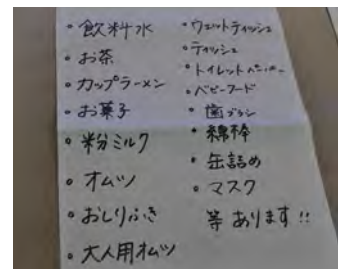 ・飲料水
・お茶
・カップラーメン
・お菓子
・粉ミルク
・オムツ
・おしりふき
・大人用オムツ
・ウェットティッシュ
・ティッシュ
・トイレットペーパー
・ベビーフード
・歯ブラシ
・綿棒
・缶詰め
・マスク
等あります!!